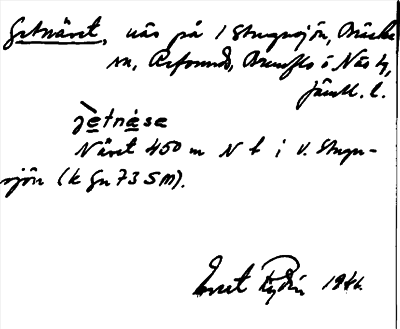 Getnäset, näs på 1 Stugusjön, Bräcke
sn, Refsunds, Brunflo o Näs tg,
Jämtl. l.
jètnása
Näset 450 m N t i V. Stugu-
sjön (k Gu 73 SM).
Evert Rydin 1946.